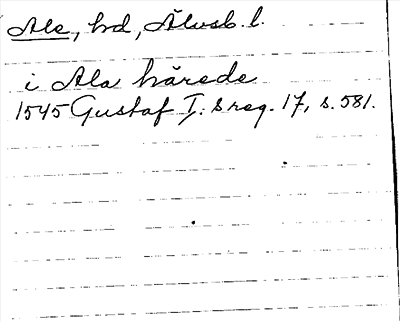 Ale, hd, Älvsb. l.
i Ala hårede
1545 Gustaf I:s reg. 17, s. 581.